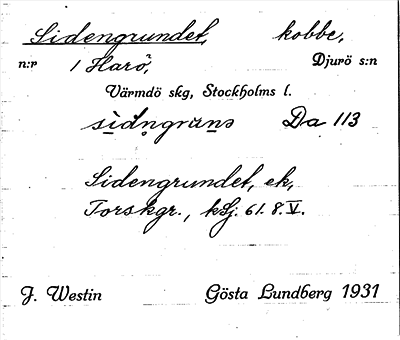 Sidengrundet, kobbe,
n:r 1 Harö, Djurö s:n
Värmdö skg, Stockholms l.
Da 113
Sidengrundet, ek,
Torskgr., kSj. 61. 8. V.
J. Westin Gösta Lundberg 1931